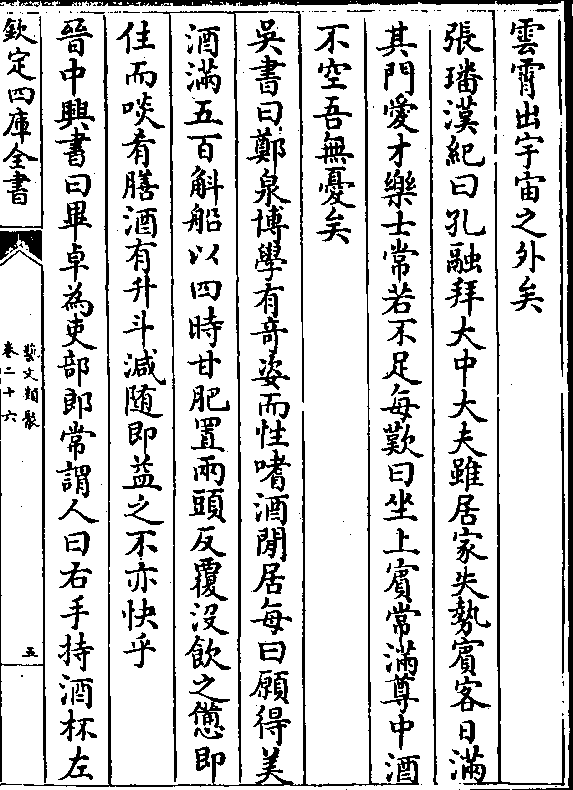 雲霄出宇宙之外矣
張璠漢紀曰孔融拜大中大夫雖居家失勢賓客日滿
其門愛才樂士常若不足每歎曰坐上賓常滿尊中酒
不空吾無憂矣
吳書曰鄭泉博學有奇姿而性嗜酒閒居每曰願得美
酒滿五百斛船以四時甘肥置兩頭反覆沒飲之憊即
住而啖肴膳酒有升斗減随即益之不亦快乎
晉中興書曰畢卓為吏部郎常謂人曰右手持酒杯左
欽定四庫全書
藝文類聚
卷二十六
五